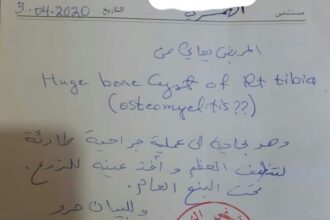 مستشفى
التاريخ 3.04.2020
المريض يعاني من
Huge bone Cyst of Rt tibia
(osteomyelitis??)
وهو بحاجة الى عملية جراحية طارئة
لتنظيف العظم و أخذ عينه للزرع
تحت البنج العام.
و للبيان حرر